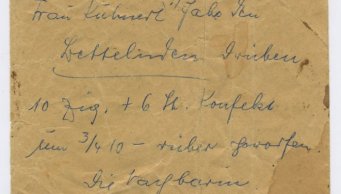 Frau Kühnert, habe den
Bettelnden Drüben
10 Zig. + 6 St. Konfekt
um 3/4 10 – rüber geworfen.
Die Nachbarin